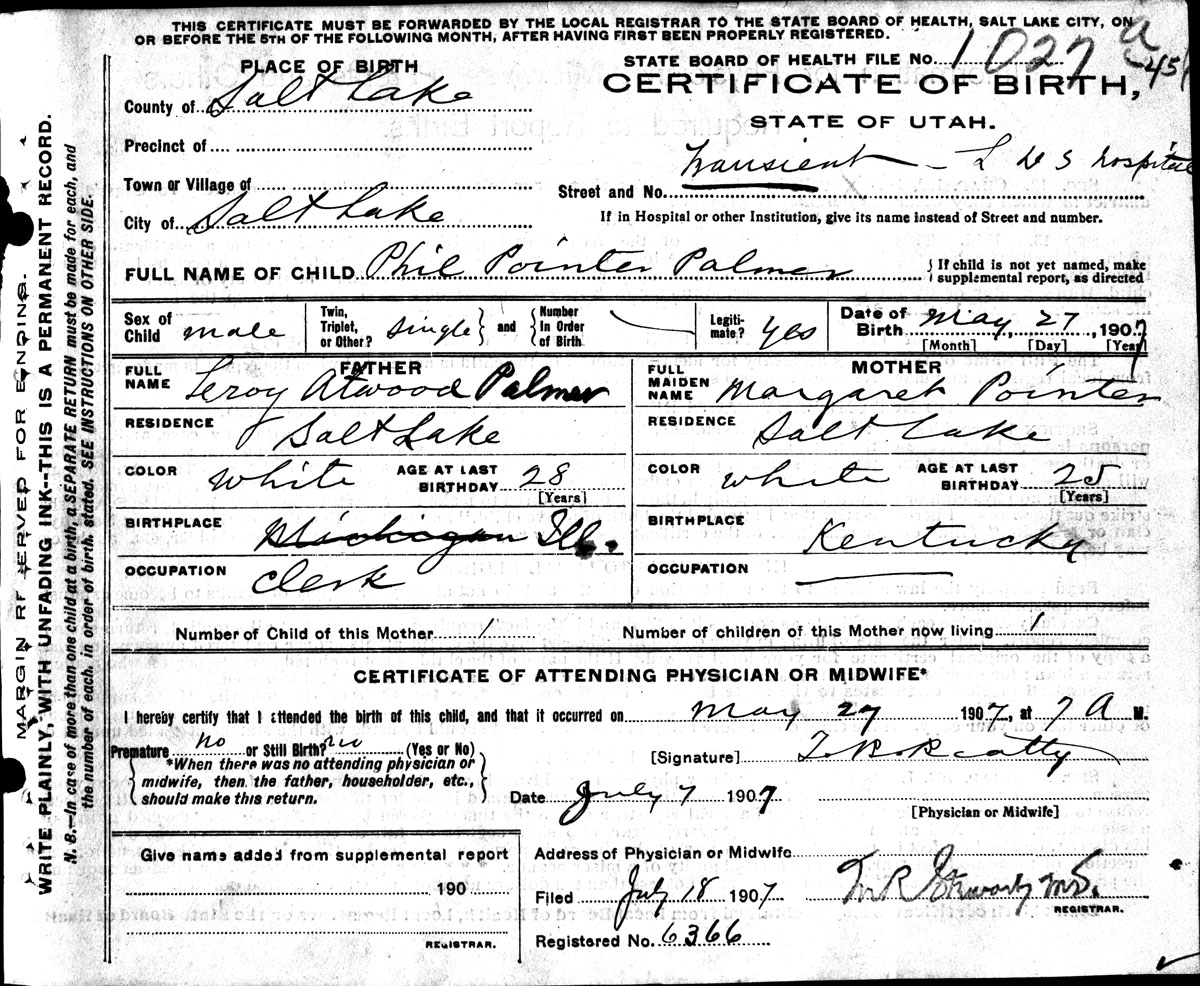 THIS CERTIFICATE MUST BE FORWARDED BY THE LOCAL REGISTRAR TO THE STATE BOARD OF HEALTH, SALT LAKE CITY, ON
OR BEFORE THE 5TH OF THE FOLLOWING MONTH, AFTER HAVING FIRST BEEN PROPERLY REGISTERED.
STATE BOARD OF HEALTH FILE No. 1027 a
451
CERTIFICATE OF BIRTH,
STATE OF UTAH.
PLACE OF BIRTH
County of Salt Lake
Precinct of
Town or Village of
City of Salt Lake
Street and No. Transient - L D S Hospital
If in Hospital or other Institution, give its name instead of Street and number.
FULL NAME OF CHILD Phil Pointer Palmer { If child is not yet named, make
supplemental report, as directed
Sex of Child male
Twin, Triplet, or Other? single } and { Number In Order of Birth
Legiti-mate? yes
Date of Birth May, 27, 1907
[Month] [Day] [Year]
FATHER
FULL NAME Leroy Atwood Palmer
RESIDENCE Salt Lake
COLOR white AGE AT LAST BIRTHDAY 28
[Years]
BIRTHPLACE Michigan Ill.
OCCUPATION Clerk
MOTHER
FULL MAIDEN NAME Margaret Pointer
RESIDENCE Salt Lake
COLOR white AGE AT LAST BIRTHDAY 25
[Years]
BIRTHPLACE Kentucky
OCCUPATION
Number of Child of this Mother 1 Number of children of this Mother now living 1
CERTIFICATE OF ATTENDING PHYSICIAN OR MIDWIFE*
I hereby certify that I attended the birth of this child, and that it occurred on May 27 1907, at 7 A M.
Premature no or Still Birth? no (Yes or No)
*When there was no attending physician or
midwife, then the father, householder, etc.,
should make this return.
[Signature] T. B. Beatty
Date July 7 1907
[Physician or Midwife]
Give name added from supplemental report
190
REGISTRAR.
Address of Physician or Midwife
Filed July 18 1907
REGISTRAR.
Registered No. 6366
MARGIN RESERVED FOR BINDING.
WRITE PLAINLY, WITH UNFADING INK--THIS IS A PERMANENT RECORD.
N. B.—In case of more than one child at a birth, a SEPARATE RETURN must be made for each, and
the number of each, in order of birth, stated. SEE INSTRUCTIONS ON OTHER SIDE.